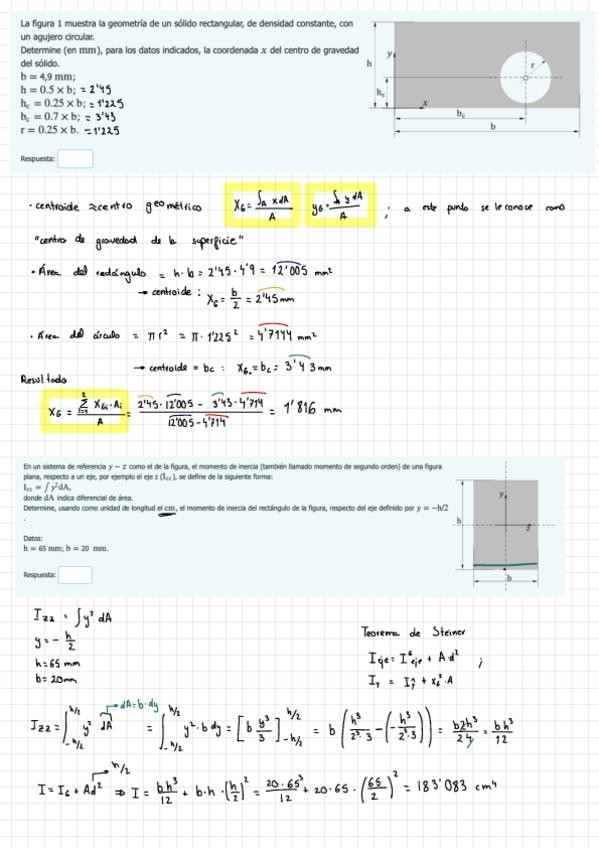 La figura 1 muestra la geometría de un sólido rectangular, de densidad constante, con
un agujero circular.
Determine (en mm), para los datos indicados, la coordenada x del centro de gravedad
del sólido.
b = 4,9 mm;
h = 0.5 × b; = 2'45
h_c = 0.25 × b; = 1'225
b_c = 0.7 × b; = 3'43
r = 0.25 × b. = 1'225
Respuesta:
h
y
r
h_c
x
b_c
b
· centroide ≈ centro geométrico X_G = ∫_A x dA / A y_G = ∫_A y dA / A ; a este punto se le conoce como
"centro de gravedad de la superficie"
· Área del rectángulo = h · b = 2'45 · 4'9 = 12'005 mm²
→ centroide : X_G = b/2 = 2'45 mm
· Área del círculo = π r² = π · 1'225² = 4'7144 mm²
→ centroide = bc : X_G = b_c = 3'43 mm
Resultado
X_G = Σ X_Gi · A_i / A = 2'45 · 12'005 - 3'43 · 4'714 / 12'005 - 4'714 = 1'816 mm
En un sistema de referencia y − z como el de la figura, el momento de inercia (también llamado momento de segundo orden) de una figura
plana, respecto a un eje, por ejemplo el eje z (I_zz), se define de la siguiente forma:
I_zz = ∫ y² dA,
donde dA indica diferencial de área.
Determine, usando como unidad de longitud el cm, el momento de inercia del rectángulo de la figura, respecto del eje definido por y = −h/2
.
Datos:
h = 65 mm; b = 20 mm.
Respuesta:
y
h
z
b
I_zz = ∫ y² dA
y = - h/2
h = 65 mm
b = 20 mm
Teorema de Steiner
I_eje = I^G_eje + A · d² ;
dA = b · dy
I_zz = ∫_{-h/2}^{h/2} y² dA = ∫_{-h/2}^{h/2} y² · b dy = [b y³/3]_{-h/2}^{h/2} = b (h³/2³·3 - (- h³/2³·3)) = b2h³/24 = bh³/12
h/2
I = I_G + Ad² ⇒ I = bh³/12 + b · h · (h/2)² = 20 · 65³/12 + 20 · 65 · (65/2)² = 183'083 cm⁴